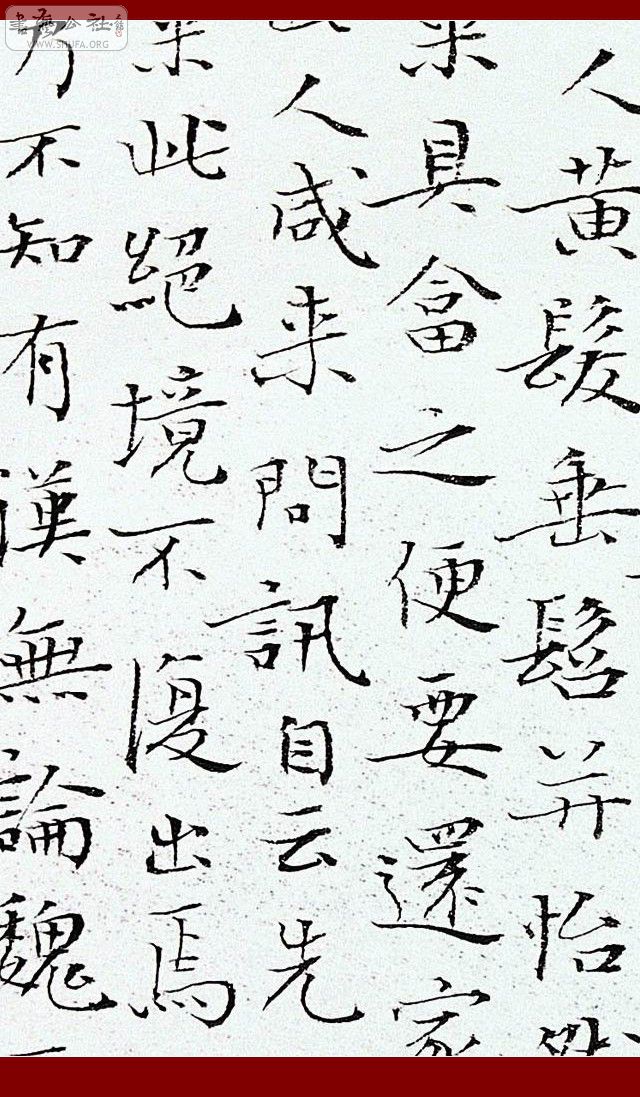 書藝公社
WWW.SHUFA.ORG
人黃髮垂髫并怡然
来具畣之便要還家
人咸来問訊自云先
来此絕境不復出焉
乃不知有漢無論魏